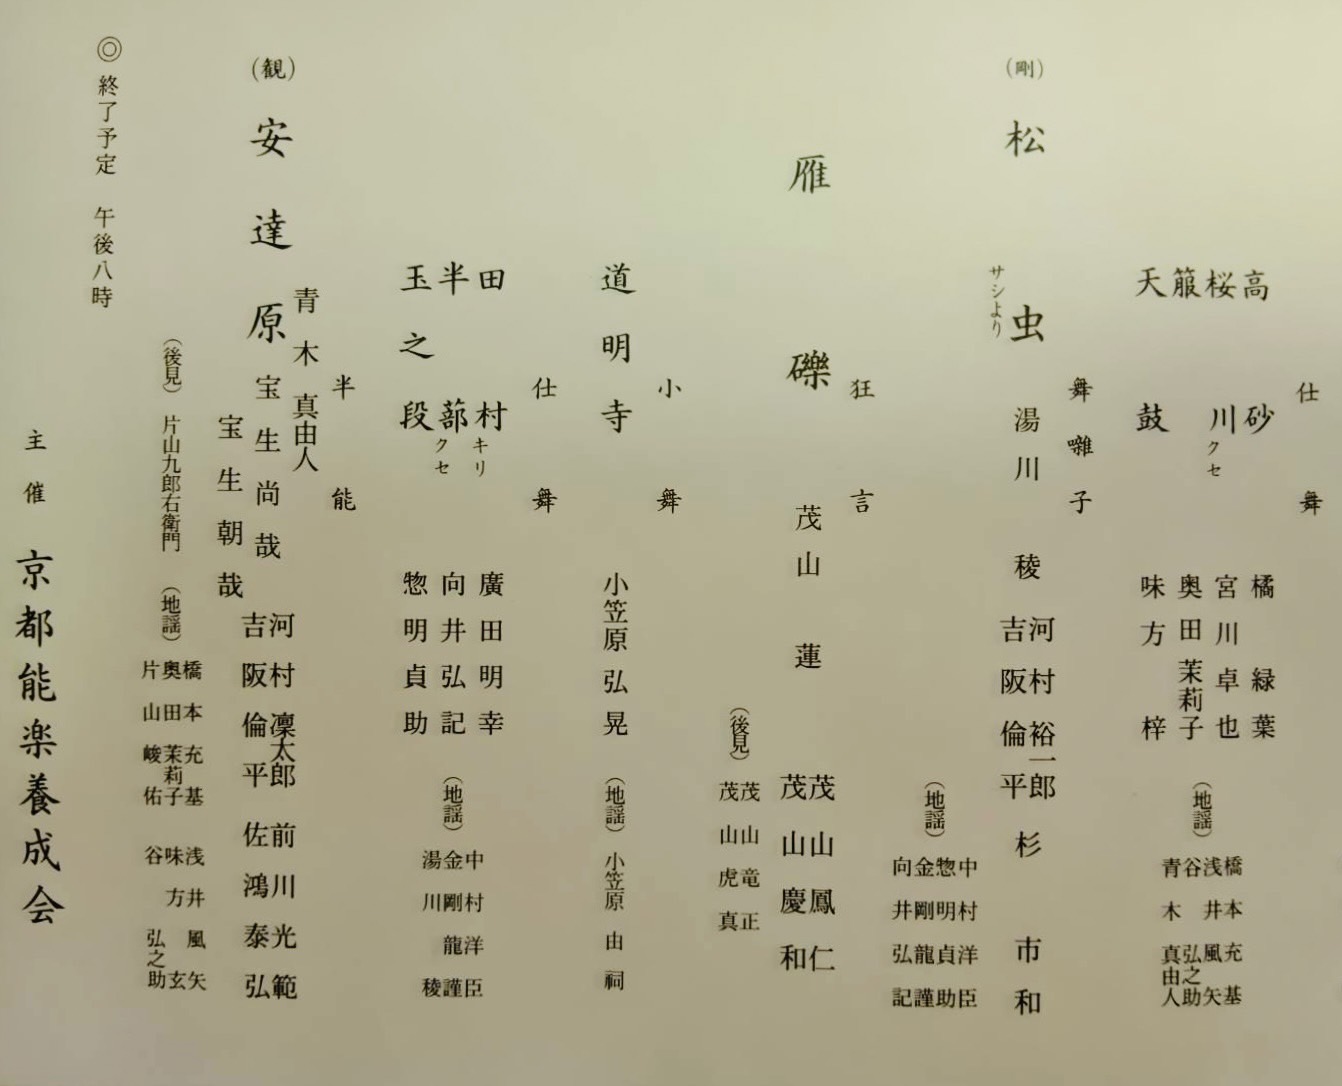 仕舞
高砂 橘緑葉
桜川 クセ 宮川卓也
箙 奥田茉莉子
天鼓 味方梓
（地謡）
橋本充基
浅井風矢
谷弘之助
青木真由人
舞囃子
（剛）松虫 サシより
湯川稜
河村裕一郎
吉阪倫平
杉市和
（地謡）
中村洋臣
惣明貞助
金剛龍謹
向井弘記
狂言
雁礫
茂山蓮
茂山鳳仁
茂山慶和
（後見）
茂山竜正
茂山虎真
小舞
道明寺 小笠原弘晃
（地謡）小笠原由祠
仕舞
田村 キリ 廣田明幸
半蔀 クセ 向井弘記
玉之段 惣明貞助
（地謡）
中村洋臣
金剛龍謹
湯川稜
半能
（観）安達原
青木真由人
宝生尚哉
宝生朝哉
河村凜太郎
吉阪倫平
前川光範
佐鴻泰弘
（後見）片山九郎右衛門
（地謡）
橋本充基
奥田茉莉子
片山峻佑
浅井風矢
味方玄
谷弘之助
◎終了予定 午後八時
主催 京都能楽養成会